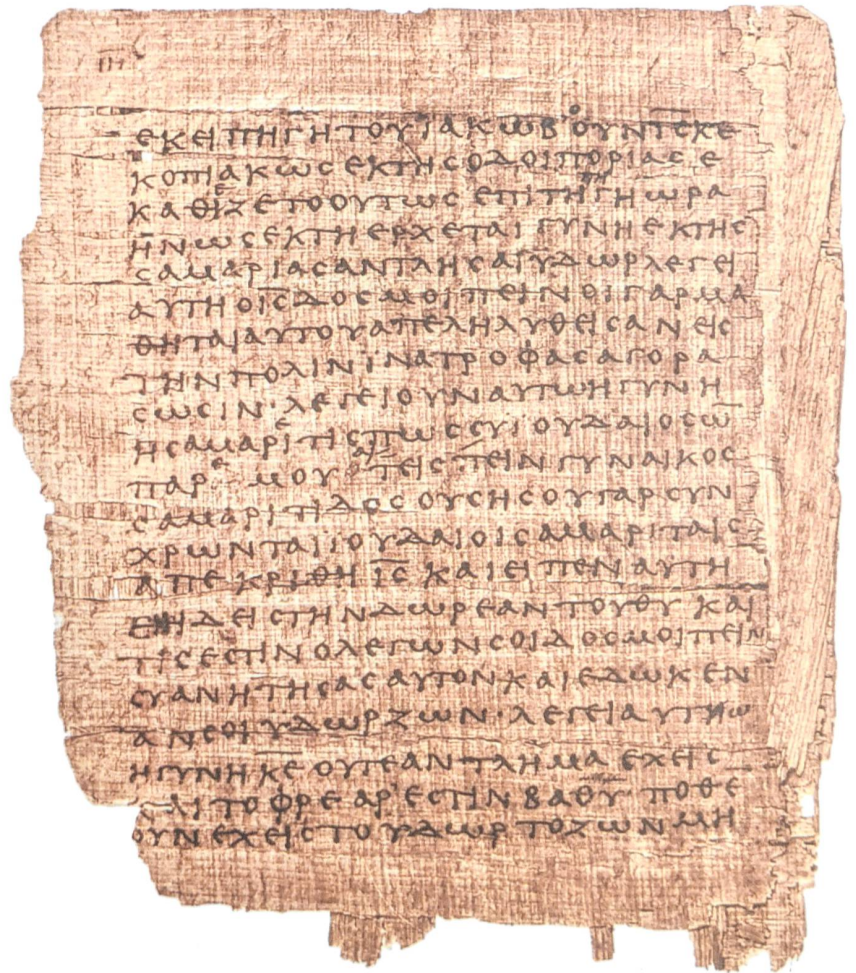 ΙΗ
ΕΚΕΙ ΠΗΓΗ ΤΟΥ ΪΑΚΩΒ Ο ΟΥΝ Ι̅Ϲ̅ ΚΕ
ΚΟΠΙΑΚΩϹ ΕΚ ΤΗϹ ΟΔΟΙΠΟΡΙΑϹ Ε
ΚΑΘΕΖΕΤΟ ΟΥΤΩϹ ΕΠΙ ΤΗ ΠΗΓΗ ΩΡΑ
ΗΝ ΩϹ ΕΚΤΗ ΕΡΧΕΤΑΙ ΓΥΝΗ ΕΚ ΤΗϹ
ϹΑΜΑΡΙΑϹ ΑΝΤΛΗϹΑΙ ΥΔΩΡ ΛΕΓΕΙ
ΑΥΤΗ Ο Ι̅Ϲ̅ ΔΟϹ ΜΟΙ ΠΕΙΝ ΟΙ ΓΑΡ ΜΑ
ΘΗΤΑΙ ΑΥΤΟΥ ΑΠΕΛΗΛΥΘΕΙϹΑΝ ΕΙϹ
ΤΗΝ ΠΟΛΙΝ ΪΝΑ ΤΡΟΦΑϹ ΑΓΟΡΑ
ϹΩϹΙΝ· ΛΕΓΕΙ ΟΥΝ ΑΥΤΩ Η ΓΥΝΗ
Η ϹΑΜΑΡΕΙΤΙϹ ΠΩϹ ϹΥ ΙΟΥΔΑΙΟϹ Ω̅
ΠΑΡ ΕΜΟΥ ΑΙΤΕΙϹ ΠΕΙΝ ΓΥΝΑΙΚΟϹ
ϹΑΜΑΡΙΤΙΔΟϹ ΟΥϹΗϹ ΟΥ ΓΑΡ ϹΥΝ
ΧΡΩΝΤΑΙ ΙΟΥΔΑΙΟΙ ϹΑΜΑΡΙΤΑΙϹ
ΑΠΕΚΡΙΘΗ Ι̅Ϲ̅ ΚΑΙ ΕΙΠΕΝ ΑΥΤΗ
ΗΔΕΙϹ ΤΗΝ ΔΩΡΕΑΝ ΤΟΥ Θ̅Υ̅ ΚΑΙ
ΤΙϹ ΕϹΤΙΝ Ο ΛΕΓΩΝ ϹΟΙ ΔΟϹ ΜΟΙ ΠΕΙΝ
ϹΥ ΑΝ ΗΤΗϹΑϹ ΑΥΤΟΝ ΚΑΙ ΕΔΩΚΕΝ
ΑΝ ϹΟΙ ΥΔΩΡ ΖΩΝ· ΛΕΓΕΙ ΑΥΤΩ
Η ΓΥΝΗ Κ̅Ε̅ ΟΥΤΕ ΑΝΤΛΗΜΑ ΕΧΕΙϹ
ΚΑΙ ΤΟ ΦΡΕΑΡ ΕϹΤΙΝ ΒΑΘΥ ΠΟΘΕ
ΟΥΝ ΕΧΕΙϹ ΤΟ ΥΔΩΡ ΤΟ ΖΩΝ ΜΗ